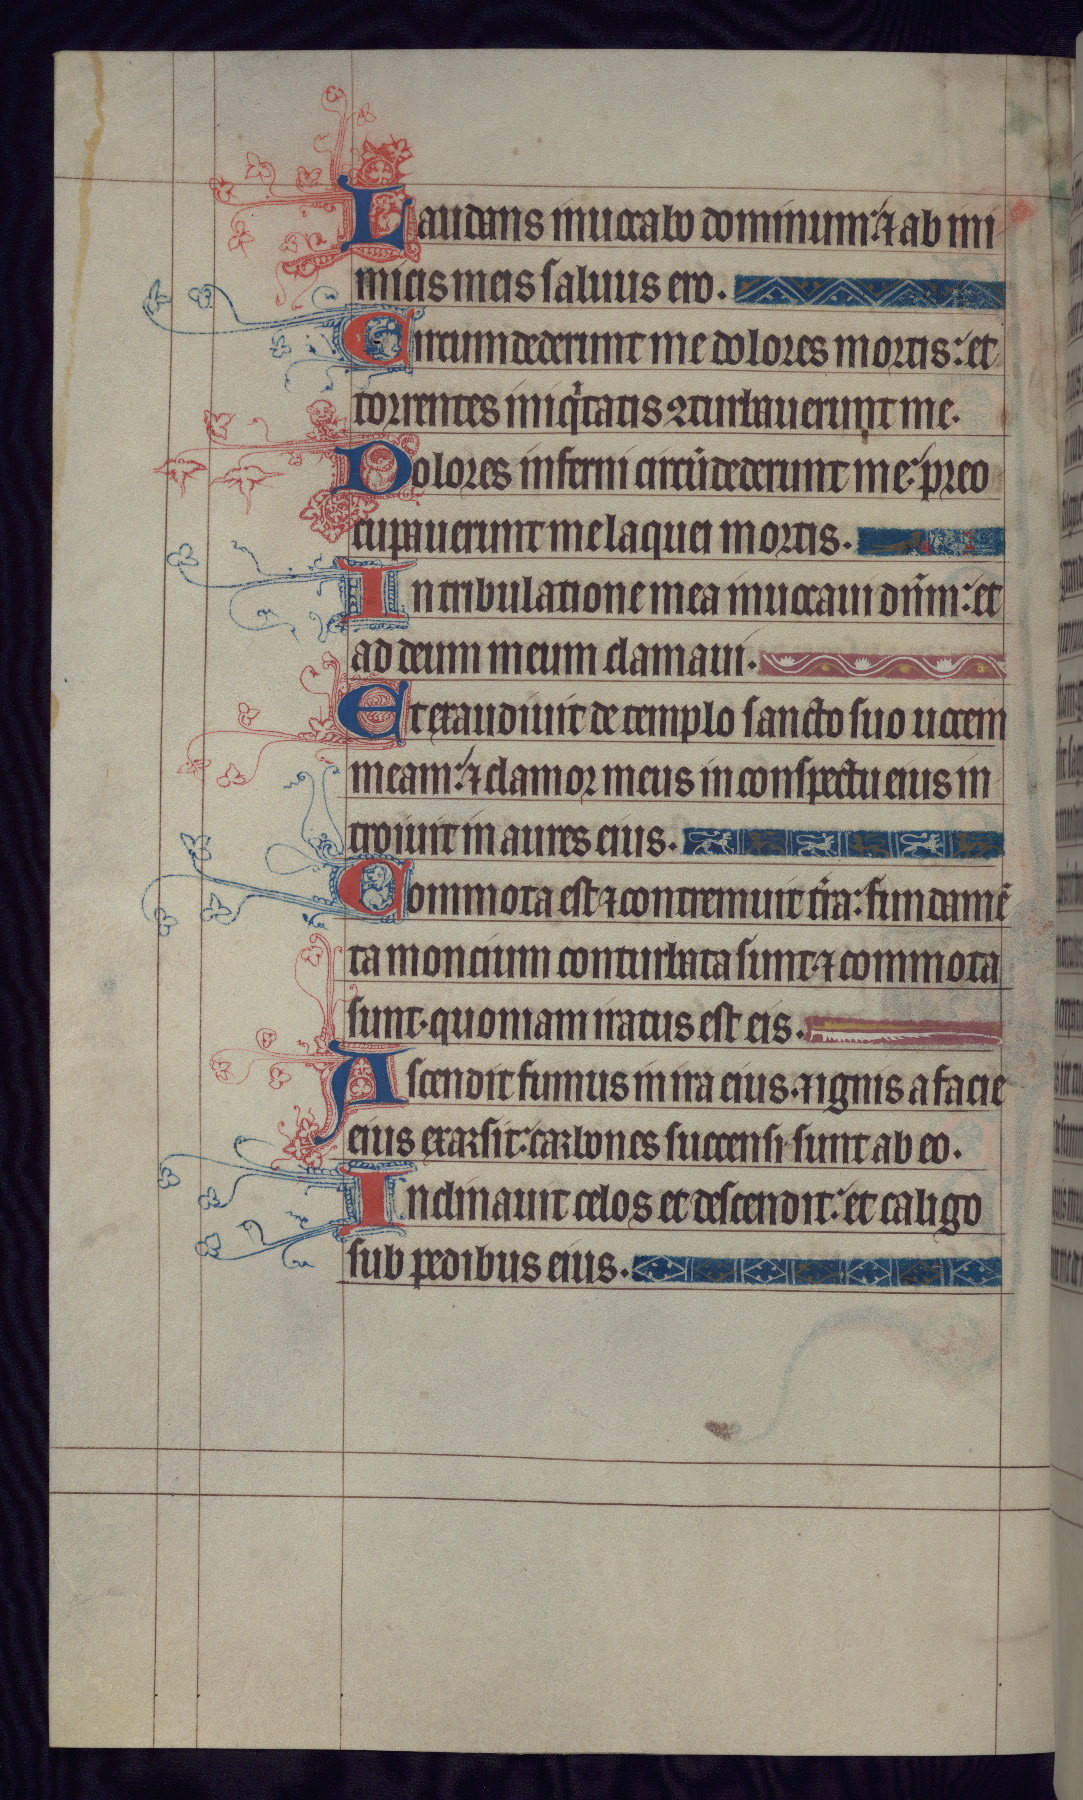 Laudans inuocabo dominum: ⁊ ab ini
micis meis saluus ero.
Circumdederunt me dolores mortis: et
torrentes iniqͥtatis ꝯturbauerunt me.
Dolores inferni circūdederunt me: preo
cupauerunt me laquei mortis.
In tribulatione mea inuocaui dn̄m: et
ad deum meum clamaui.
Et exaudiuit de templo sancto suo uocem
meam: ⁊ clamor meus in conspectu eius in
troiuit in aures eius.
Commota est ⁊ contremuit t̄ra: fundamē
ta moncium conturbata sunt ⁊ commota
sunt quoniam iratus est eis.
Ascendit fumus in ira eius ⁊ ignis a facie
eius exarsit: carbones succensi sunt ab eo.
Inclinauit celos et descendit: et caligo
sub pedibus eius.